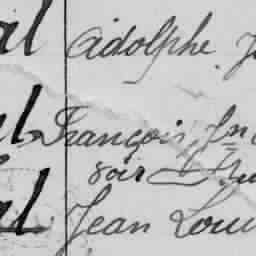 al Adolphe. J
al François, Jn
soir
al Jean Lou